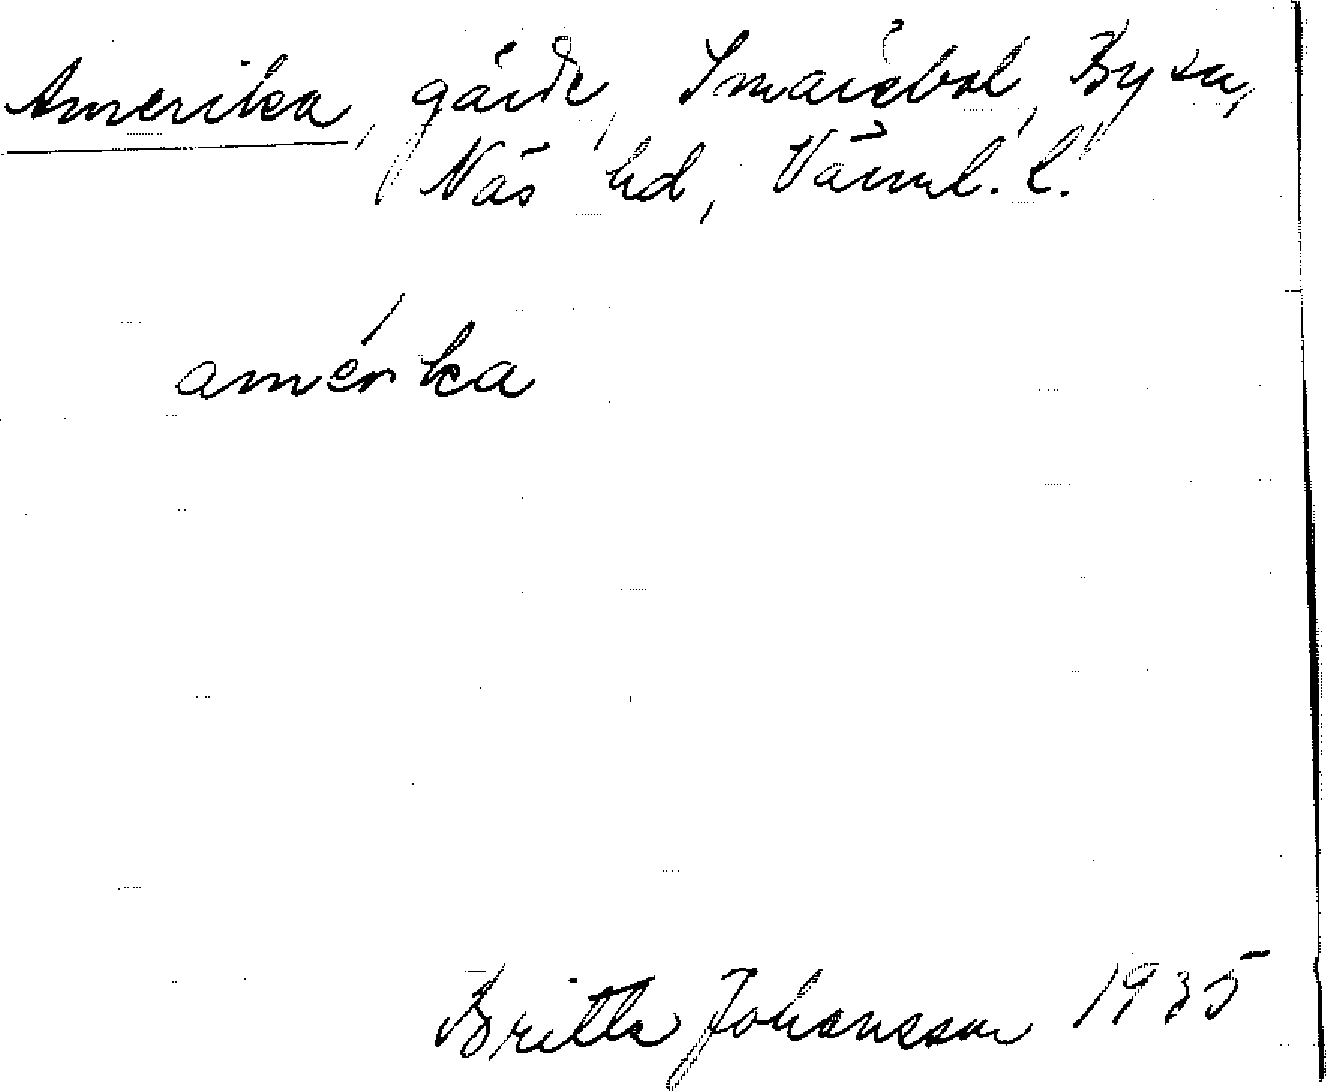 Amerika, gärde, Smårsbol, By sn,
Näs hd, Värml. l.
amérka
Britta Johansson 1935